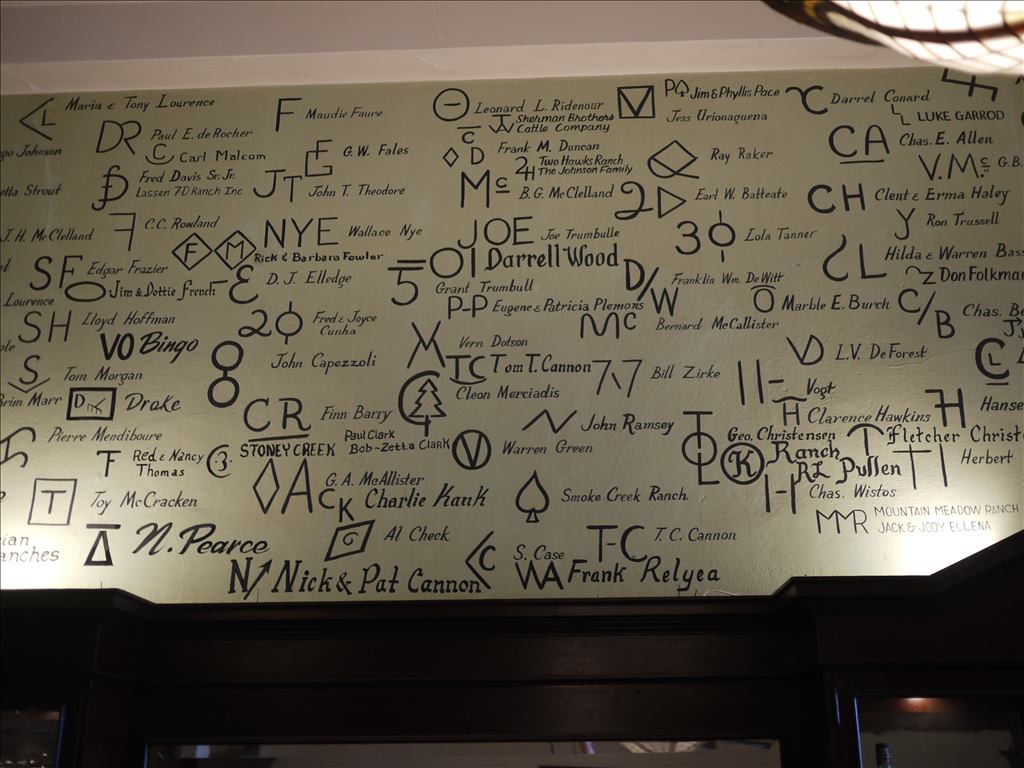 L Maria & Tony Lourence
F Maudie Faure
Leonard L. Ridenour
V Jess Urionaguena
P Jim & Phyllis Pace
C Darrel Conard
L LUKE GARROD
DR Paul E. de Rocher
C Carl Malcom
Sherman Brothers
Cattle Company
CA Chas. E. Allen
Johnson
G.W. Fales
D Frank M. Duncan
2H Two Hawks Ranch
The Johnson Family
Ray Raker
V.Mc G.B.
Strout
Fred Davis Sr. Jr.
Lassen 7D Ranch Inc
JT John T. Theodore
Mc B.G. McClelland
2 Earl W. Batteate
CH Clent & Erma Haley
J.H. McClelland
C.C. Rowland
NYE Wallace Nye
JOE Joe Trumbulle
3 Lola Tanner
Y Ron Trussell
F M Rick & Barbara Fowler
Darrell Wood
L Hilda & Warren Bass
SF Edgar Frazier
D.J. Elledge
5 Grant Trumbull
D/W Franklin Wm. DeWitt
Don Folkman
Lourence
Jim & Dottie French
P-P Eugene & Patricia Plemons
O Marble E. Burch
C/B Chas.
SH Lloyd Hoffman
2 Fred & Joyce
Cunha
Mc Bernard McCallister
VO Bingo
Vern Dotson
VD L.V. DeForest
S Tom Morgan
John Capezzoli
TC Tom T. Cannon
77 Bill Zirke
Vogt
CL
Brim Marr
Drake
Cleon Merciadis
CR Finn Barry
John Ramsey
H Clarence Hawkins
H Hanse
Pierre Mendiboure
STONEY CREEK
Paul Clark
Bob-Zetta Clark
V Warren Green
Geo. Christensen
K Ranch
Fletcher Christ
F Red & Nancy
Thomas
3
RL Pullen
Herbert
T Toy McCracken
A G.A. McAllister
CK Charlie Kank
Smoke Creek Ranch
H Chas. Wistos
MMR MOUNTAIN MEADOW RANCH
JACK & JODY ELLENA
N. Pearce
G Al Check
C S. Case
T-C T.C. Cannon
N Nick & Pat Cannon
WA Frank Relyea